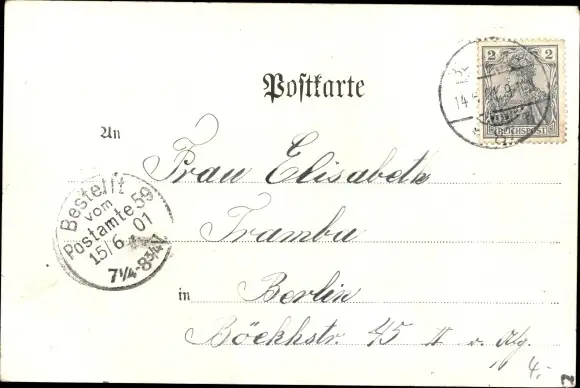 Postkarte
2 2
REICHSPOST
14
An
Frau Elisabeth
Tramba
in Berlin
Böckhstr. 45 II v.
Bestellt
vom
Postamte 59
15/6 01
7¼-8¾V.
4.-